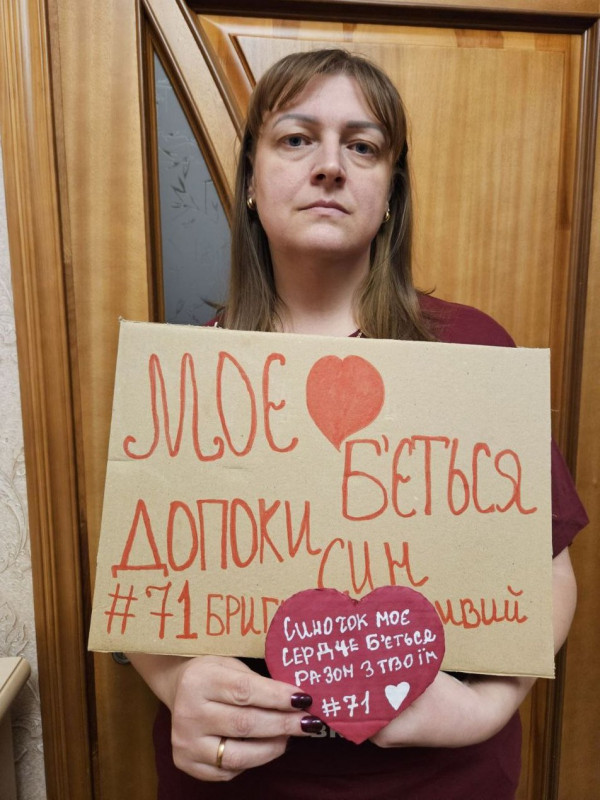 МОЄ
Б'ЄТЬСЯ
ДОПОКИ
СИН
#71 БРИГ ИВИЙ
СИНОЧОК МОЄ
СЕРДЦЕ Б'ЄТЬСЯ
РАЗОН З ТВОЇМ
#71